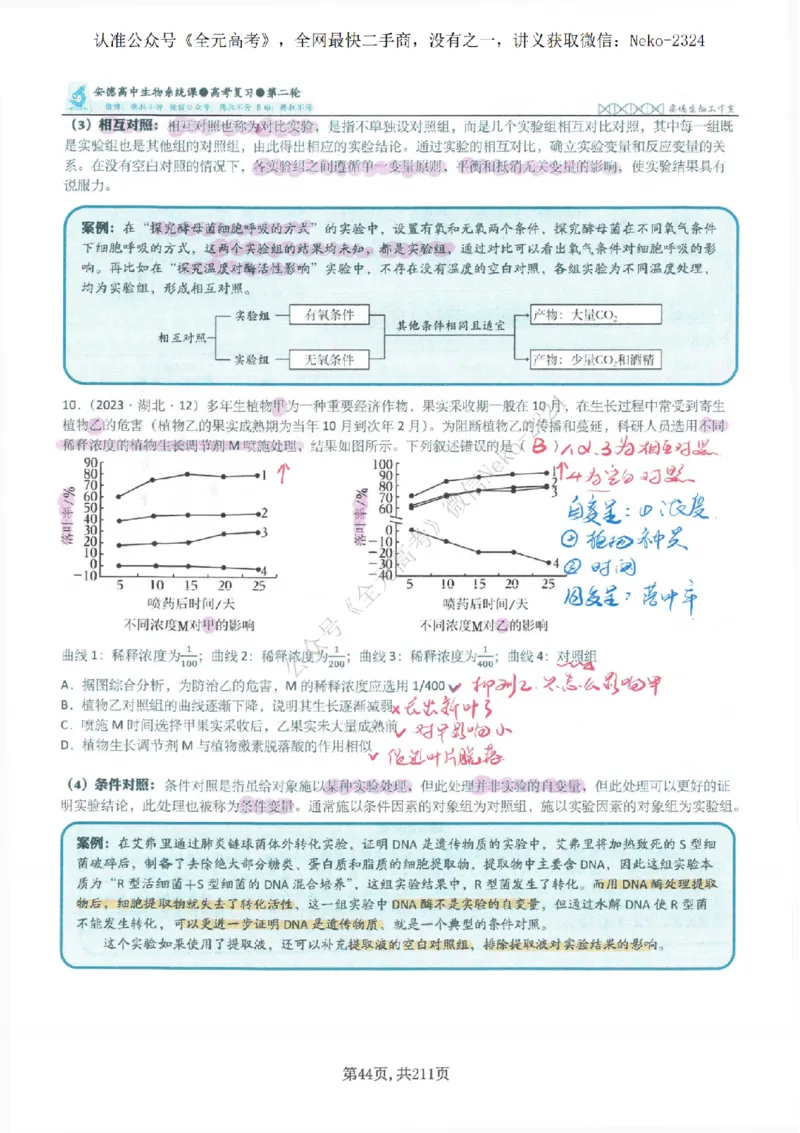 认准公众号《全元高考》，全网最快二手商，没有之一，讲义获取微信：Neko-2324
安德高中生物系统课●高考复习●第二轮
安德生物工作室
（3）相互对照：相互对照也称为对比实验，是指不单独设对照组，而是几个实验组相互对比对照，其中每一组既
是实验组也是其他组的对照组，由此得出相应的实验结论。通过实验的相互对比，确立实验变量和反应变量的关
系。在没有空白对照的情况下，各实验组之间遵循单一变量原则、平衡和抵消无关变量的影响，使实验结果具有
说服力。
案例：在“探究酵母菌细胞呼吸的方式”的实验中，设置有氧和无氧两个条件，探究酵母菌在不同氧气条件
下细胞呼吸的方式，这两个实验组的结果均未知，都是实验组，通过对比可以看出氧气条件对细胞呼吸的影
响。再比如在“探究温度对酶活性影响”实验中，不存在没有温度的空白对照，各组实验为不同温度处理，
均为实验组，形成相互对照。
相互对照
实验组
有氧条件
其他条件相同且适宜
产物：大量CO₂
实验组
无氧条件
产物：少量CO₂和酒精
10.（2023·湖北·12）多年生植物甲为一种重要经济作物，果实采收期一般在10月，在生长过程中常受到寄生
植物乙的危害（植物乙的果实成熟期为当年10月到次年2月）。为阻断植物乙的传播和蔓延，科研人员选用不同
稀释浓度的植物生长调节剂M喷施处理，结果如图所示。下列叙述错误的是（ B ）
1、2、3为相互对照
4为空白对照
自变量：①浓度
②植物种类
③时间
因变量：落叶率
落叶率/%
90
80
70
60
50
40
30
20
10
0
-10
1
2
3
4
5 10 15 20 25
喷药后时间/天
不同浓度M对甲的影响
落叶率/%
100
90
80
70
60
0
-10
-20
-30
-40
1
2
3
4
5 10 15 20 25
喷药后时间/天
不同浓度M对乙的影响
公众号《全元高考》微信Neko-2324
曲线1：稀释浓度为1/100；曲线2：稀释浓度为1/200；曲线3：稀释浓度为1/400；曲线4：对照组
A．据图综合分析，为防治乙的危害，M的稀释浓度应选用1/400 ✓ 抑制乙 不怎么影响甲
B．植物乙对照组的曲线逐渐下降，说明其生长逐渐减弱 × 长出新叶了
C．喷施M时间选择甲果实采收后，乙果实未大量成熟前 ✓ 对甲影响小
D．植物生长调节剂M与植物激素脱落酸的作用相似 ✓ 促进叶片脱落
（4）条件对照：条件对照是指虽给对象施以某种实验处理，但此处理并非实验的自变量，但此处理可以更好的证
明实验结论，此处理也被称为条件变量。通常施以条件因素的对象组为对照组，施以实验因素的对象组为实验组。
案例：在艾弗里通过肺炎链球菌体外转化实验，证明DNA是遗传物质的实验中，艾弗里将加热致死的S型细
菌破碎后，制备了去除绝大部分糖类、蛋白质和脂质的细胞提取物，提取物中主要含DNA，因此这组实验本
质为“R型活细菌+S型细菌的DNA混合培养”，这组实验结果中，R型菌发生了转化。而用DNA酶处理提取
物后，细胞提取物就失去了转化活性，这一组实验中DNA酶不是实验的自变量，但通过水解DNA使R型菌
不能发生转化，可以更进一步证明DNA是遗传物质，就是一个典型的条件对照。
这个实验如果使用了提取液，还可以补充提取液的空白对照组，排除提取液对实验结果的影响。
第44页,共211页